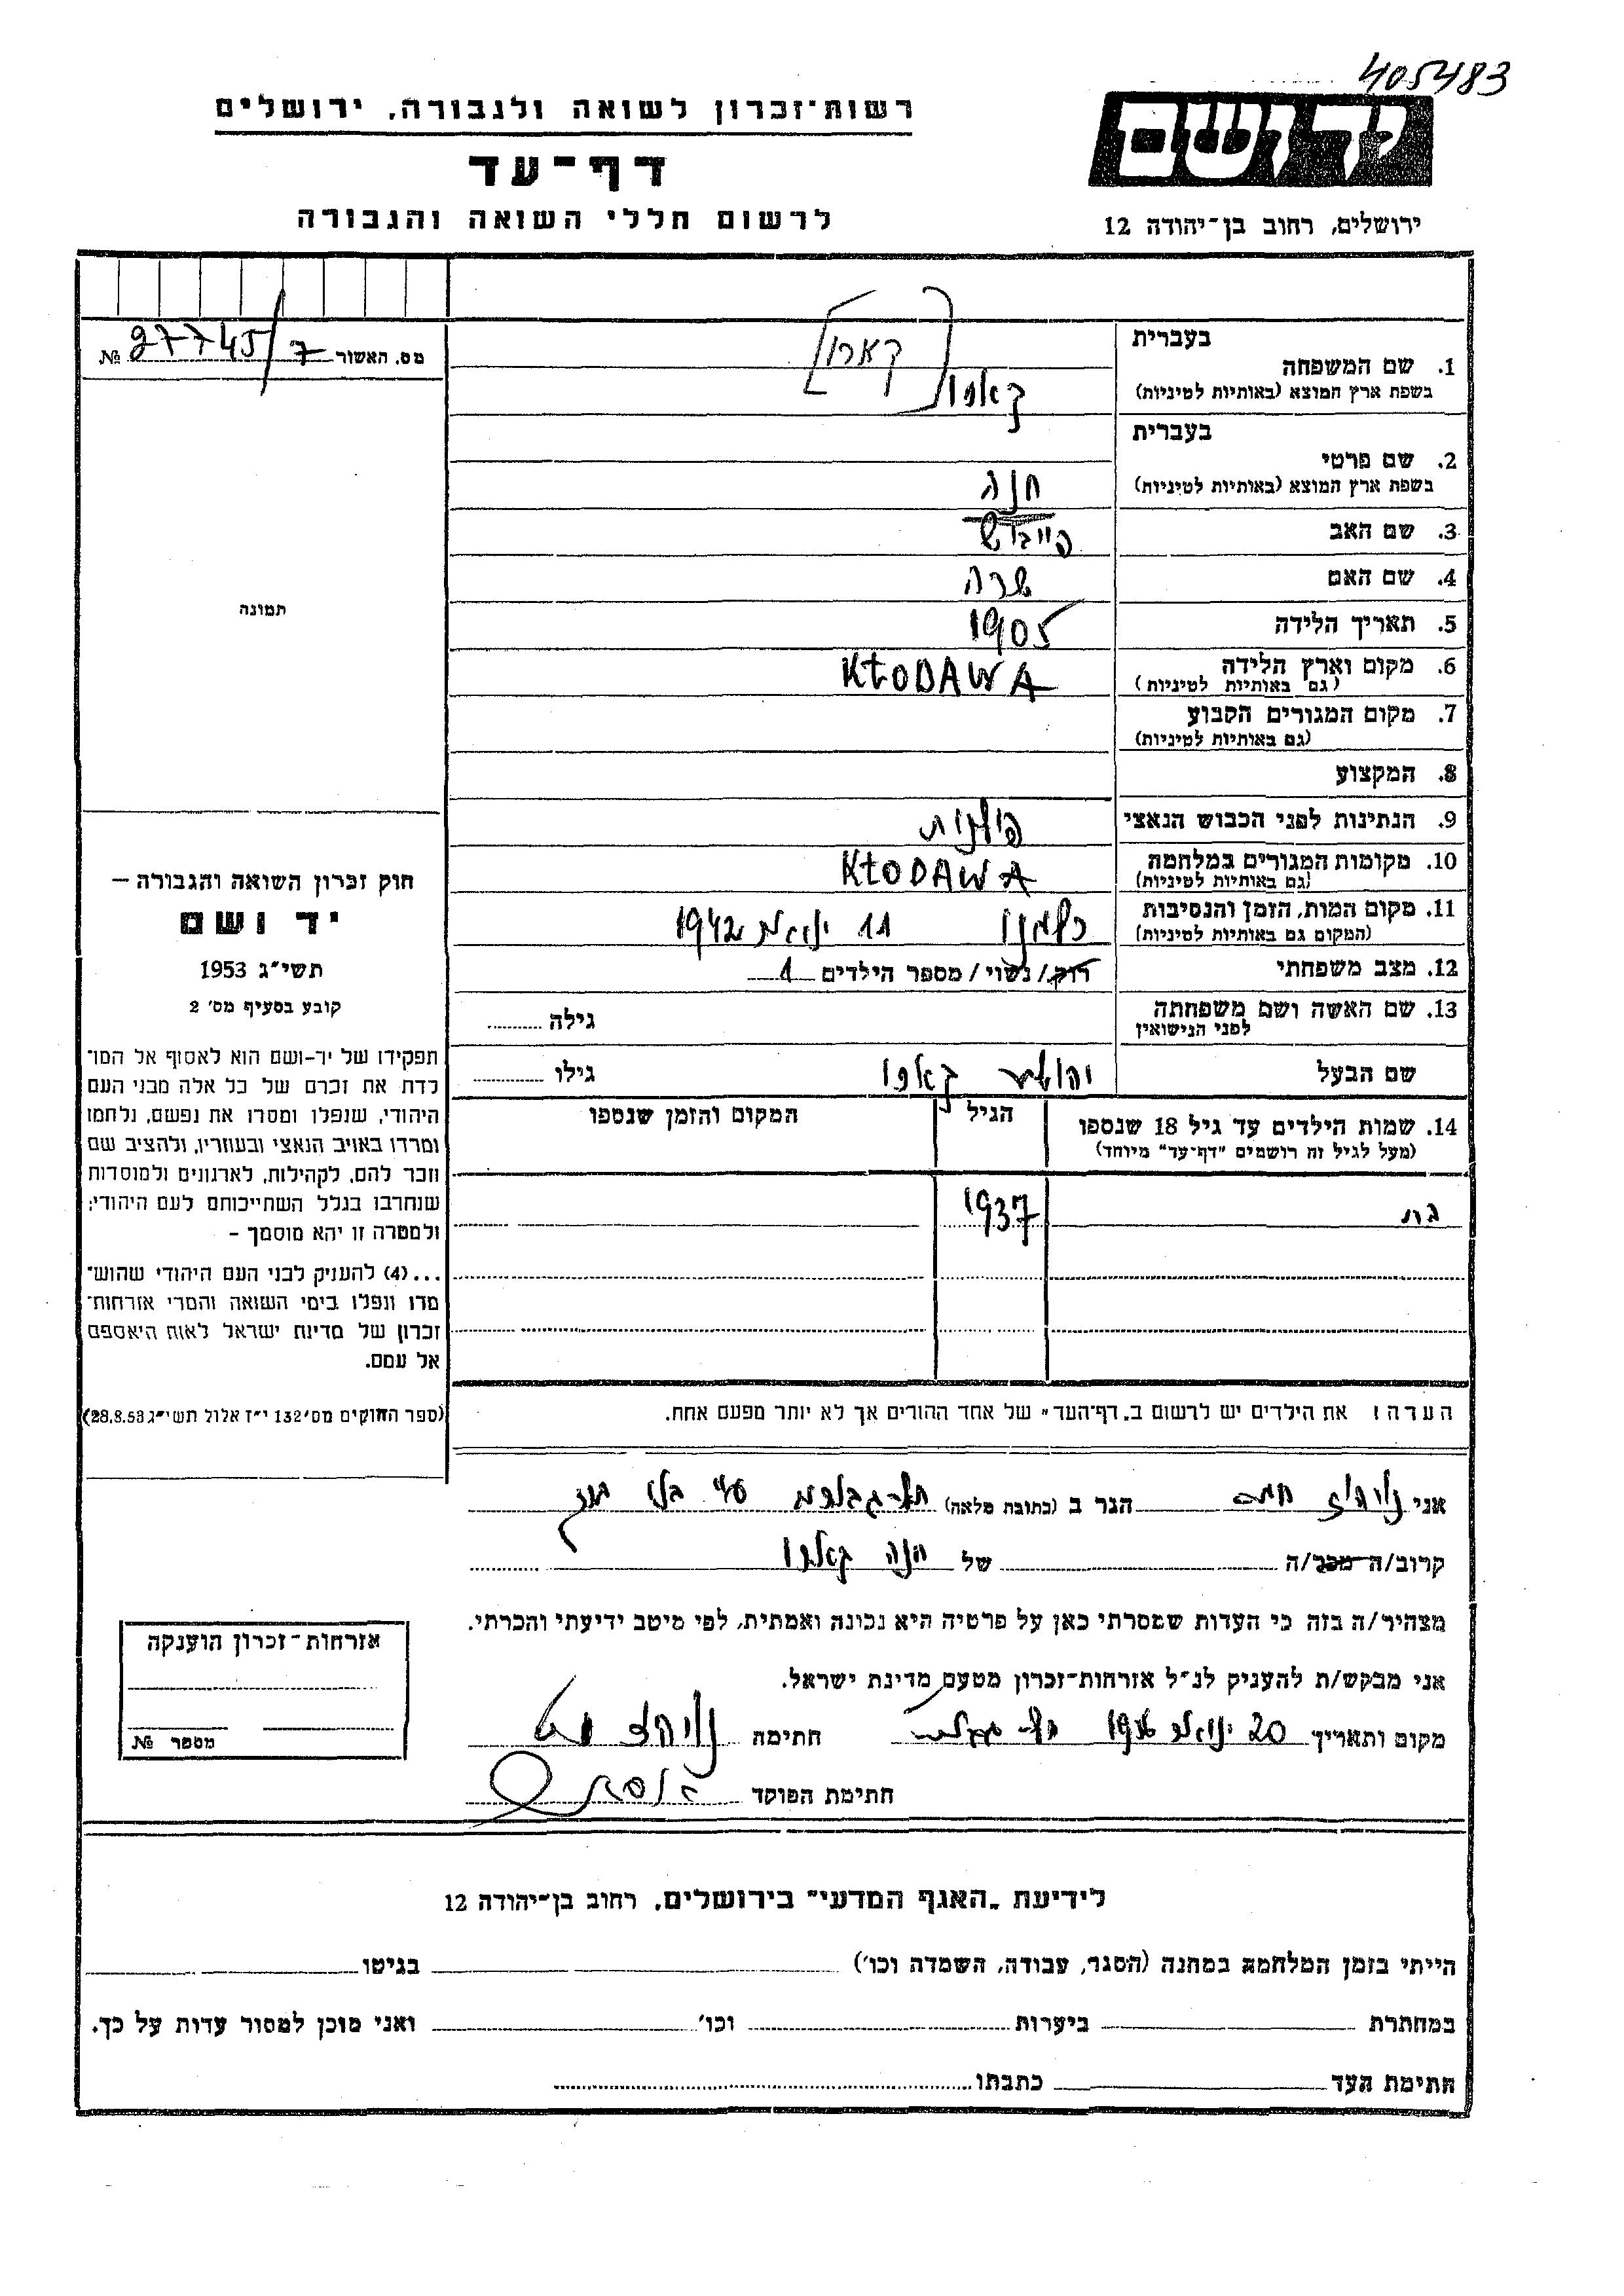 405483
רשות־זכרון לשואה ולגבורה, ירושלים
דף־עד
לרשום חללי השואה והגבורה
יד ושם
ירושלים, רחוב בן־יהודה 12
מס. האשור 27745/7 №
בעברית
1. שם המשפחה
בשפת ארץ המוצא (באותיות לטיניות)
[קארו]
קארו
בעברית
2. שם פרטי
בשפת ארץ המוצא (באותיות לטיניות)
חנה
3. שם האב פייבוש
4. שם האם שרה
5. תאריך הלידה 1905
6. מקום וארץ הלידה KŁODAWA
(גם באותיות לטיניות)
7. מקום המגורים הקבוע
(גם באותיות לטיניות)
8. המקצוע
9. הנתינות לפני הכבוש הנאצי פולנית
10. מקומות המגורים במלחמה KŁODAWA
(גם באותיות לטיניות)
11. מקום המות, הזמן והנסיבות כלמנו 11 ינואר 1942
(המקום גם באותיות לטיניות)
12. מצב משפחתי רוק / נשוי / מספר הילדים 1
13. שם האשה ושם משפחתה גילה
לפני הנישואין
שם הבעל קארו גילו
14. שמות הילדים עד גיל 18 שנספו הגיל המקום והזמן שנספו
(מעל לגיל זה רושמים "דף־עד" מיוחד)
בת 1937
הערה: את הילדים יש לרשום ב"דף־העד" של אחד ההורים אך לא יותר מפעם אחת.
תמונה
חוק זכרון השואה והגבורה —
יד ושם
תשי"ג 1953
קובע בסעיף מס' 2
תפקידו של יד-ושם הוא לאסוף אל המו־
לדת את זכרם של כל אלה מבני העם
היהודי, שנפלו ומסרו את נפשם, נלחמו
ומרדו באויב הנאצי ובעוזריו, ולהציב שם
וזכר להם, לקהילות, לארגונים ולמוסדות
שנחרבו בגלל השתייכותם לעם היהודי;
ולמטרה זו יהא מוסמך –
...(4) להעניק לבני העם היהודי שהוש־
מדו ונפלו בימי השואה והמרי אזרחות־
זכרון של מדינת ישראל לאות היאספם
אל עמם.
(ספר החוקים מס' 132 י"ז אלול תשי"ג 28.8.53)
אני הגר ב (כתובת מלאה)
קרוב/ה מכר/ה של חנה קארו
מצהיר/ה בזה כי העדות שמסרתי כאן על פרטיה היא נכונה ואמתית, לפי מיטב ידיעתי והכרתי.
אני מבקש/ת להעניק לנ"ל אזרחות־זכרון מטעם מדינת ישראל.
מקום ותאריך 20 ינואר חתימה
חתימת הפוקד
אזרחות־זכרון הוענקה
מספר №
לידיעת "האגף המדעי" בירושלים, רחוב בן־יהודה 12
הייתי בזמן המלחמה במחנה (הסגר, עבודה, השמדה וכו') בגיטו
במחתרת ביערות וכו' ואני מוכן למסור עדות על כך.
חתימת העד כתבתו